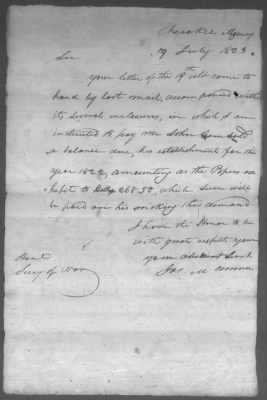 Cherokee Agency
19 July 1823.
Sir
your letter of the 19th ult came to
hand by last mail, accompanied with
its several enclosures, in which I am
instructed to pay Mr John
a balance due, his establishment for the
year 1822, amounting as the Papers ex
hibit to Dolls 268.50, which sum will
be paid on his making the demand
I have the Honor to be
with great respect your
your obedient Servt
Jos. McMinn
Honl
Secy of War